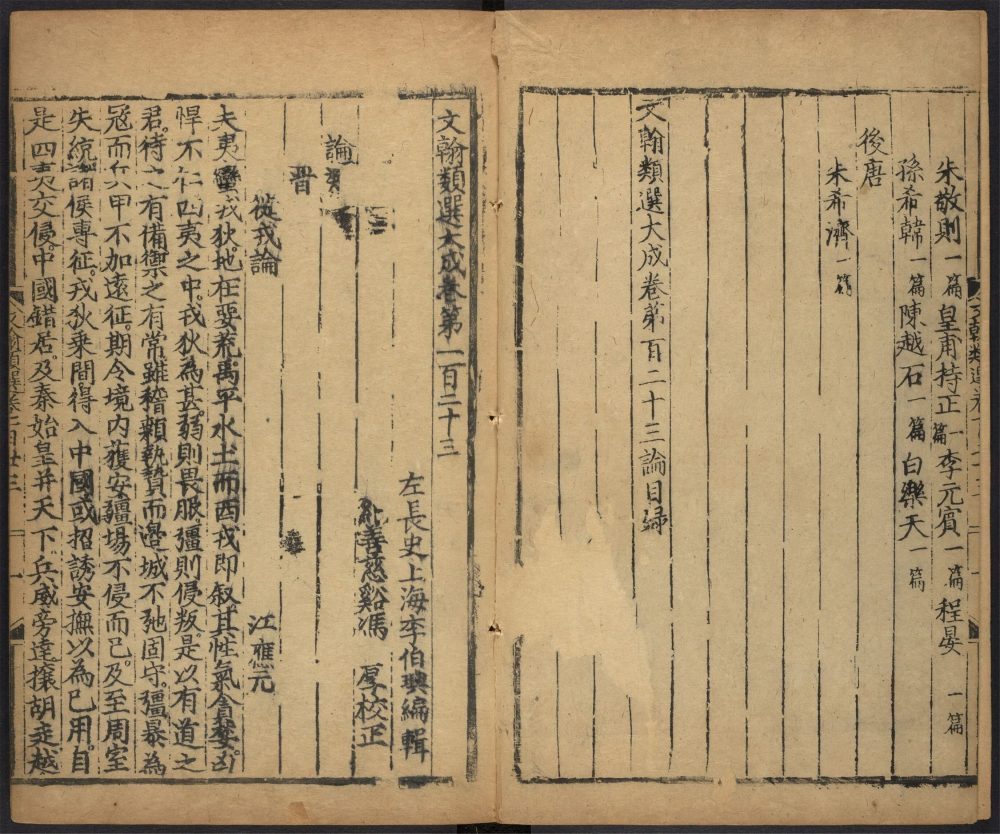 朱敬則一篇 皇甫持正一篇 李元賓一篇 程晏一篇
孫希韓一篇 陳越石一篇 白樂天一篇
後唐
朱希濟一篇
文翰類選大成卷第一百二十三論目録
文翰類選大成卷第一百二十三
左長史上海李伯璵編輯
紀善慈谿馮 厚校正
論
晋
從戎論 江應元
夫夷蠻戎狄地在要荒禹平水土而西戎即叙其性氣貪婪凶
悍不仁四夷之中戎狄為甚弱則畏服彊則侵叛是以有道之
君待之有備禦之有常雖稽顙執贄而邊城不弛固守彊暴為
冦而兵甲不加遠征期令境内獲安疆場不侵而已及至周室
失統諸侯專征戎狄乗間得入中國或招誘安撫以為已用自
是四夷交侵中國錯居及秦始皇并天下兵威旁達攘胡走越